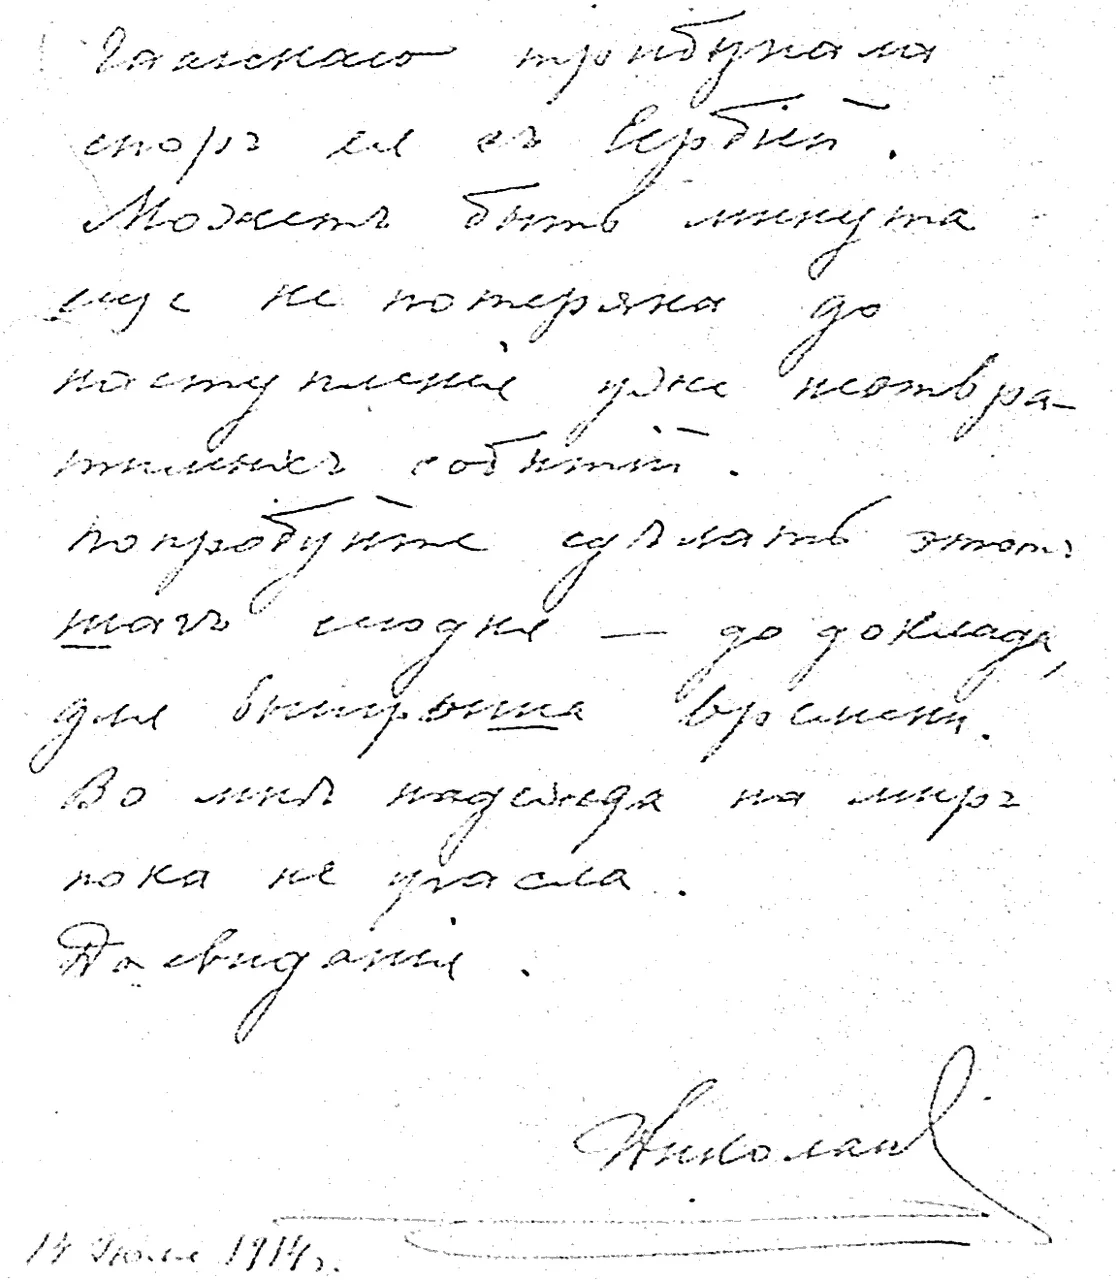 Гаагскаго трибунала
споръ ея съ Сербіей.
Можетъ быть минута
еще не потеряна до
наступленія уже неотвра-
тимыхъ событій.
Попробуйте сдѣлать этотъ
шагъ сегодня — до доклада,
для выигрыша времени.
Во мнѣ надежда на миръ
пока не угасла.
До свиданія.
Николай
14 Июля 1914 г.